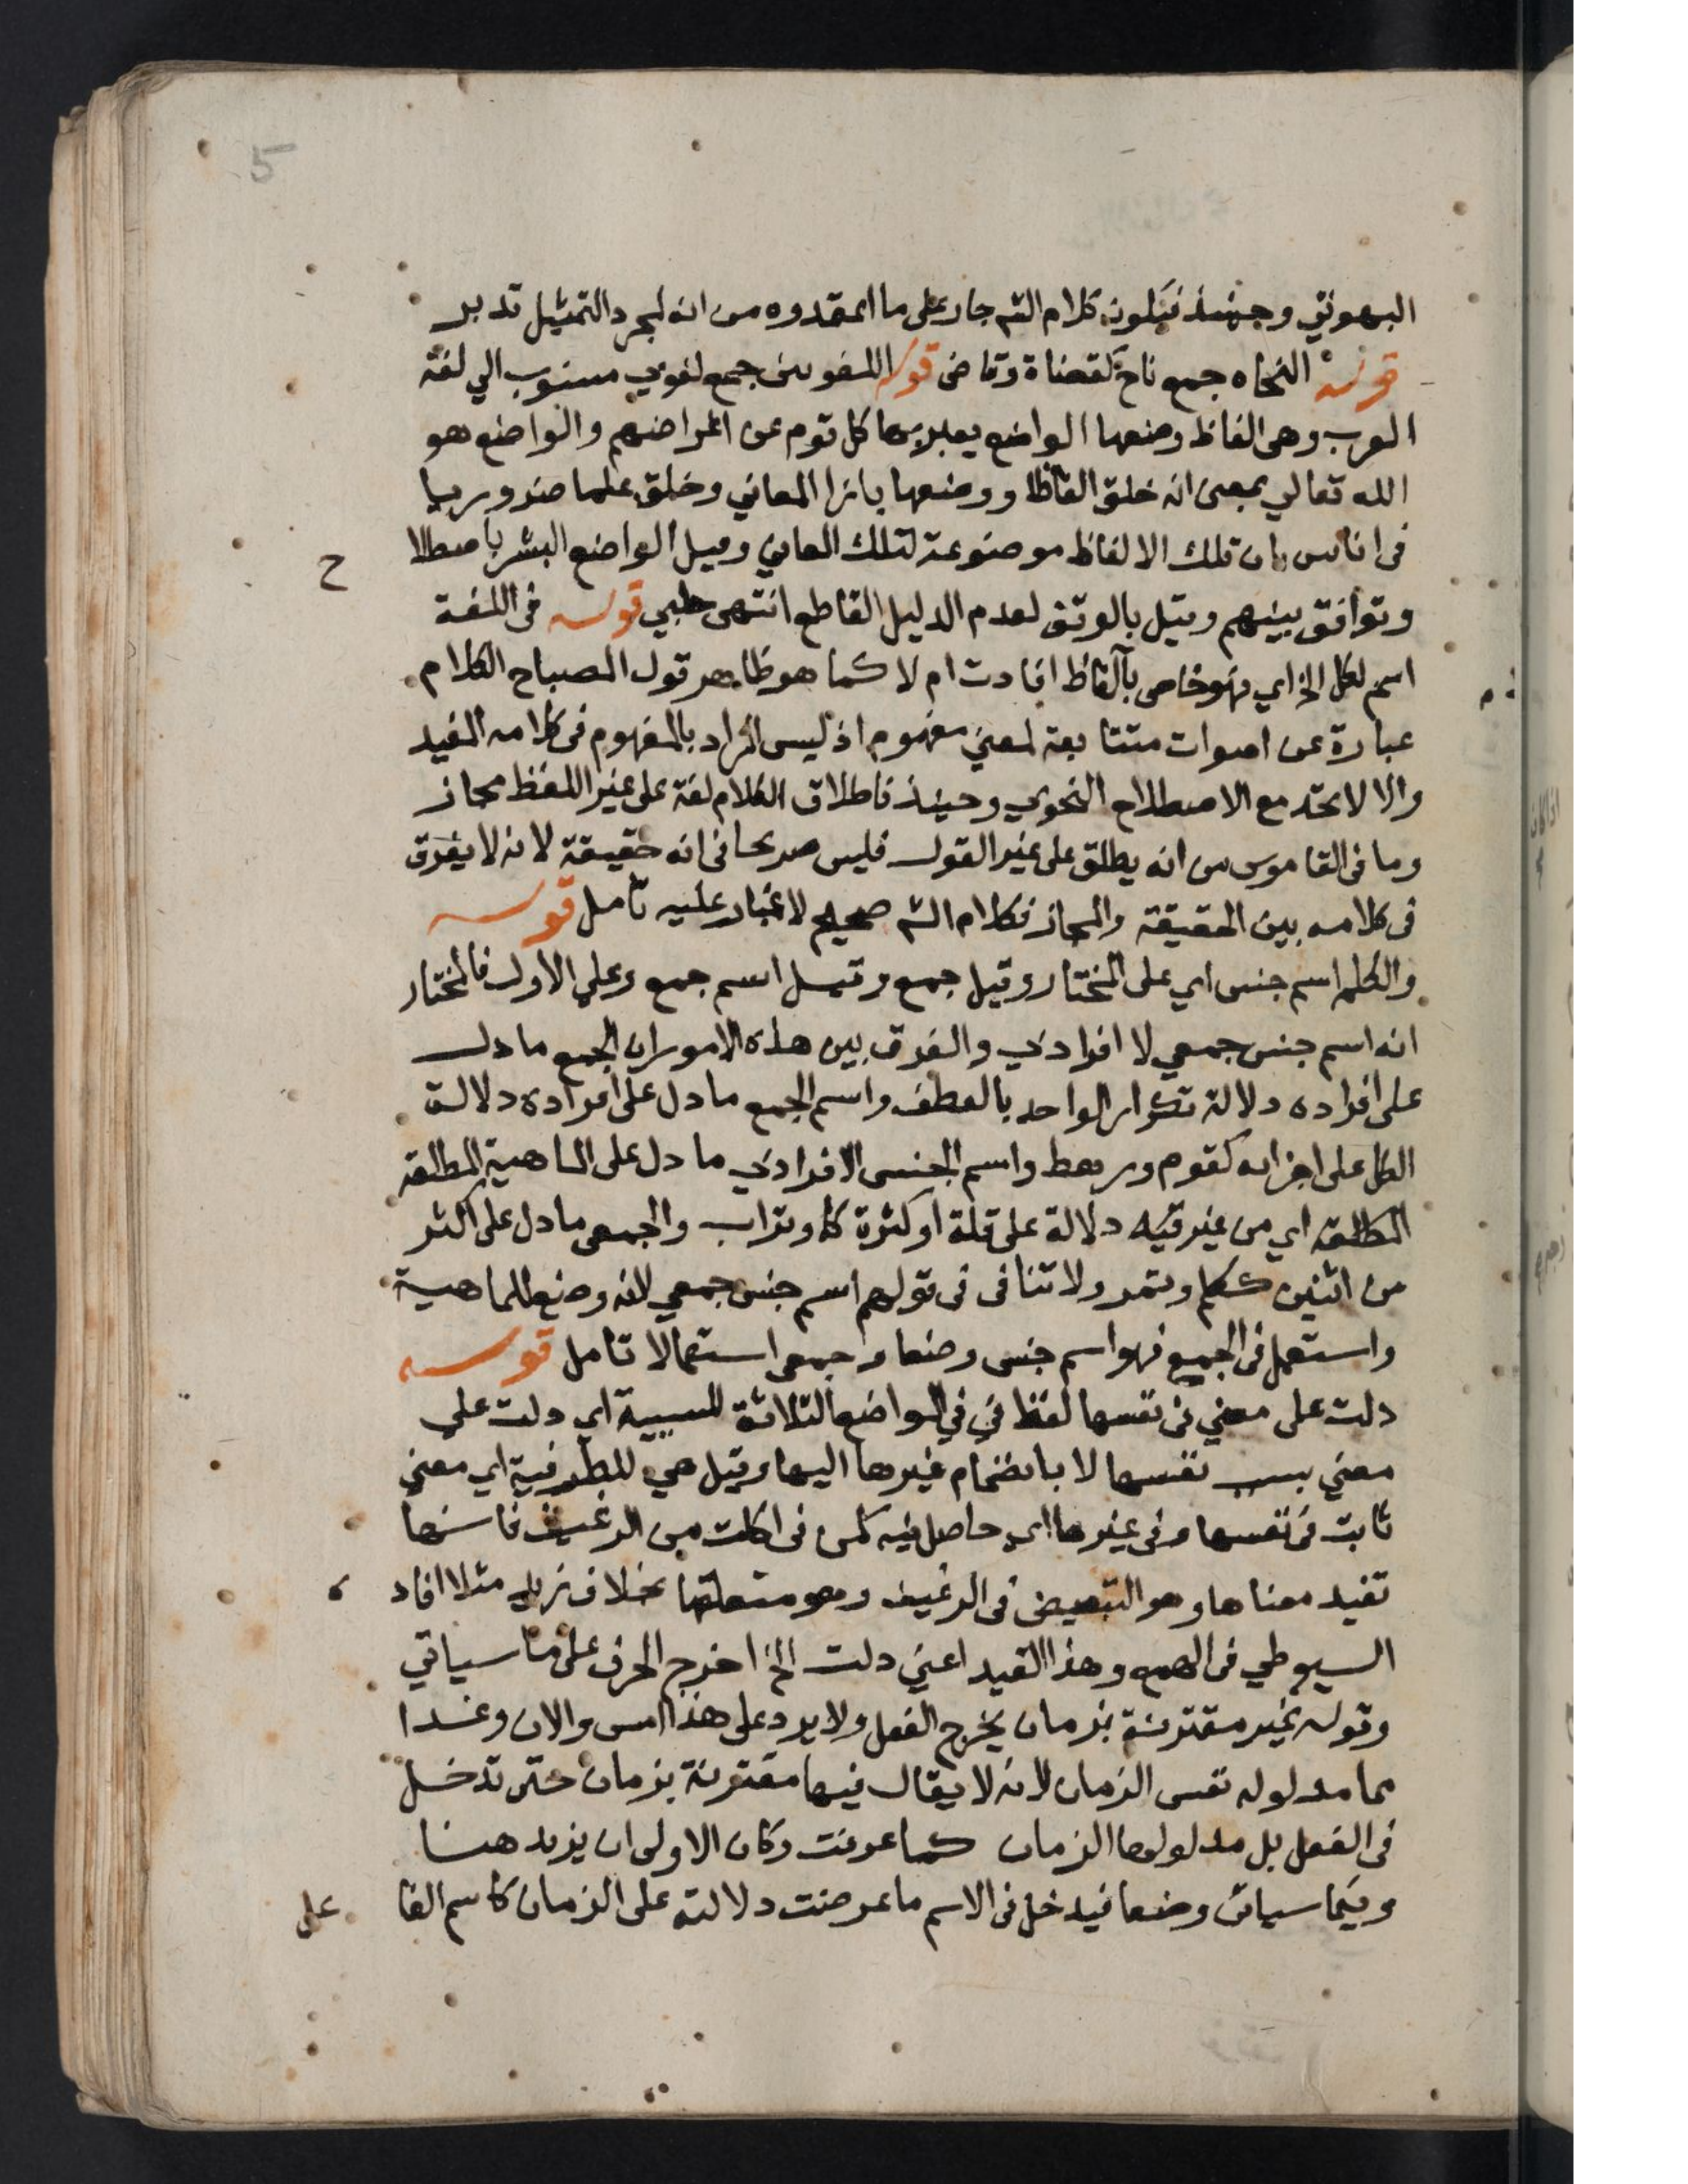 5
البهوتي وحينئذ فيكون كلام الشم جار على ما اعتمدوه من انه لمجرد التمثيل تدبر
قوله النحاه جمع ناح كقضاة وقاض قوله اللغويين جمع لغوي منسوب الي لغة
العرب وهي الفاظ وضعها الواضع يعبر بها كل قوم عن اغراضهم والواضع هو
الله تعالي بمعنى انه خلق الفاظا ووضعها بازا المعاني وخلق علما ضروريا
فى اناس بان تلك الالفاظ موضوعة لتلك المعاني وقيل الواضع البشر باصطلا
ح
وتوافق بينهم وقيل بالوقف لعدم الدليل القاطع انتهى حلبي قوله فى اللغة
اسم لكل الخ اي فهو خاص بالفاظ افادت ام لا كما هو ظاهر قول المصباح الكلام
عبارة عن اصوات متتابعة لمعني مفهوم اذ ليس المراد بالمفهوم فى كلامه المفيد
والا لاتحد مع الاصطلاح النحوي وحينئذ فاطلاق الكلام لغة على غير اللفظ مجاز
وما فى القاموس من انه يطلق على غير القول فليس صريحا فى انه حقيقة لانه لا يفرق
فى كلامه بين الحقيقة والمجاز فكلام الشم صحيح لا غبار عليه تامل قوله
والكلم اسم جنس اي على المختار وقيل جمع وقيل اسم جمع وعلي الاول فالمختار
انه اسم جنس جمعي لا افرادي والفرق بين هذه الامور ان الجمع ما دل
على افراده دلالة تكرار الواحد بالعطف واسم الجمع ما دل على افراده دلالة
الكل على اجزائه كقوم ورهط واسم الجنس الافرادي ما دل على الماهية المطلقة
المطلقة اي من غير قيد دلالة على قلة او كثرة كماء وتراب والجمعي ما دل على اكثر
من اثنين ككلم وتمر ولا تنافى فى قولهم اسم جنس جمعي لانه وضع للماهية
واستعمل فى الجمع فهو اسم جنس وضعا وجمعي استعمالا تامل قوله
دلت على معني فى نفسها لفظ في في المواضع الثلاثة للسببية اي دلت علي
معني بسبب نفسها لا بانضمام غيرها اليها وقيل هي للظرفية اي معني
ثابت فى نفسها وفى غيرها اي حاصل فيه كمن فى اكلت من الرغيف فانها
تفيد معناها وهو التبعيض فى الرغيف وهو متعلقها بخلاف زيد مثلا افاد
ه
السيوطي فى الهمع وهذا القيد اعني دلت الخ اخرج الحرف على ما سياتي
وقوله غير مقترنة بزمان يخرج الفعل ولا يرد على هذا امس والان وغدا
مما مدلوله نفس الزمان لانه لا يقال فيها مقترنة بزمان حتى تدخل
فى الفعل بل مدلولها الزمان كما عرفت وكان الاولى ان يزيد هنا
وفيما سياتى وضعا فيدخل فى الاسم ما عرضت دلالته على الزمان كاسم الفا
على